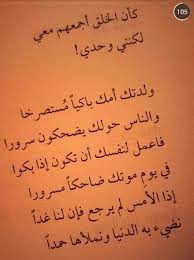 105
كأن الخلق أجمعهم معي
لكنني وحدي!
ولدتك أمك باكياً مُستصرخا
والناس حولك يضحكون سرورا
فاعمل لنفسك أن تكون إذا بكوا
في يومِ موتك ضاحكاً مسرورا
إذا الأمس لم يرجع فإن لنا غداً
نضيء به الدنيا ونملأها حمداً